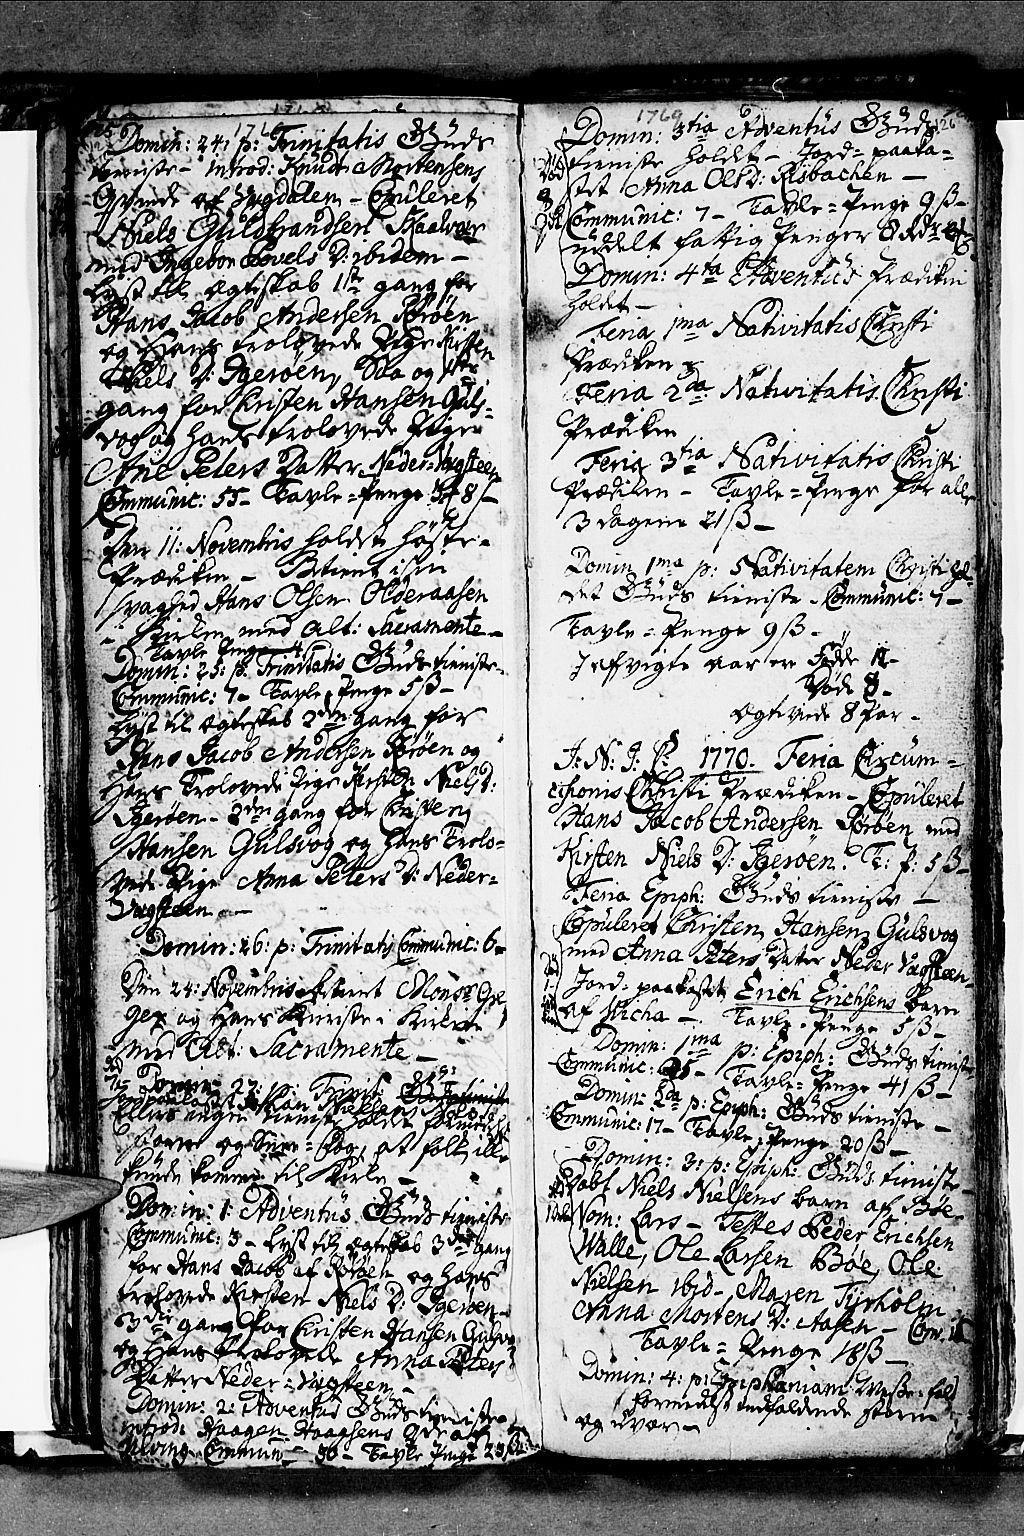 1769
Domin: 24: p: Trinitatis Guds
tieniste – Introd: Knud Mortensens
Qvinde af Sygdalen – Copuleret
Niels Guldbrandsen Skaalvær
med Ingebor Povels D: ibidem –
Lyst til Ægteskab 1ste gang for
Hans Jacob Andersen Sørøen
og Hans trolovede Pige Kirsten
Niels D: Igerøen, Saa og 1ste
gang for Christen Hansen Guls-
vog og hans trolovede Pige
Ane Peters Datter Neder-Vagsteen
Communic: 55 – Tavle-Penge 8 ß –
Den 11: Novembris holdet Høste-
Prædiken – Betient i sin
svaghed Hans Olsen Olderaasen
i Kirken med Alt: Sacramente –
Tavle Penge
Domin: 25: p: Trinitatis Guds tieniste –
Communic: 7 – Tavle-Penge 5 ß –
Lyst til Ægteskab 2den gang for
Hans Jacob Andersen Sørøen og
Hans Trolovede Pige Kirsten Niels D:
Igerøen – 2den gang for Christen
Hansen Gulsvog og hans Trolo-
vede Pige Anna Peters D: Neder-
Vagsteen –
Domin: 26: p: Trinitatis Communic: 6 –
Den 24: Novembris betient Mons:
og Hans Kieriste i Kirken
med Alt: Sacramente –
Domin: 27: p: Trinit:
Ellers ingen tieniste holdet formedelst
Storm og Snee-Fog, at folk ikke
kunde komme til Kirke –
Domin: 1: Adventus Guds tieniste
Communic: 3 – Lyst til Ægteskab 3die gang
for Hans Jacob af Sørøen og hans
trolovede Kirsten Niels D: Igerøen –
3die gang for Christen Hansen Gulsvog
og Hans Trolovede Anna Peters
Datter Neder-Vagsteen –
Domin: 2: Adventus Guds tieniste
Introd: Haagen Haagsens Qvinde af
Communic – 30 – Tavle Penge 23 ß
1769
126
Domin: 3tia Adventus Guds
tieniste holdet – Jord-paaka-
stet Anna Ols D: Risbachen –
Communic: 7 – Tavle-Penge 9 ß –
uddelt fattig Penger 8 Rdr
Domin: 4ta Adventus Prædiken
holdet –
Feria 1ma Nativitatis Christi
Prædiken
Feria 2da Nativitatis Christi
Prædiken
Feria 3tia Nativitatis Christi
Prædiken – Tavle-Penge for alle
3 dagene 21 ß –
Domin 1ma p: Nativitatem Christi hol-
det Guds tieniste – Communic: 7 –
Tavle-Penge 9 ß –
I afvigte aar er Fødde 11 –
Døde 8 –
Ægteviede 8 Par –
J: N: J: C: 1770. Feria Circum-
cisionis Christi Prædiken – Copuleret
Hans Jacob Andersen Sørøen med
Kirsten Niels D: Igerøen. T: P: 5 ß –
Feria Epiph: Guds tieniste –
Copuleret Christen Hansen Gulsvog
med Anna Peters Datter Neder Vagsteen –
Jord-paakastet Erich Erichsens barn
af Micha – Tavle-Penge 5 ß –
Domin: 1ma p: Epiph: Guds tieniste
Communic: 25 – Tavle-Penge 41 ß –
Domin: 2da p: Epiph: Guds tieniste –
Communic: 17 – Tavle-Penge 20 ß –
Domin: 3: p: Epiph: Guds tieniste –
Døbt Niels Nielsens barn af Bøe –
Nom: Lars – Testes Peder Erichsen
Walle, Ole Larsen Bøe, Ole
Nielsen ibid – Maren Tyrholm
Anna Mortens D: Aasen – Com:
Tavle-Penge 18 ß –
Domin: 4: p: Epiphaniam Messe-fald
formedelst indfaldende storm
og uvær –